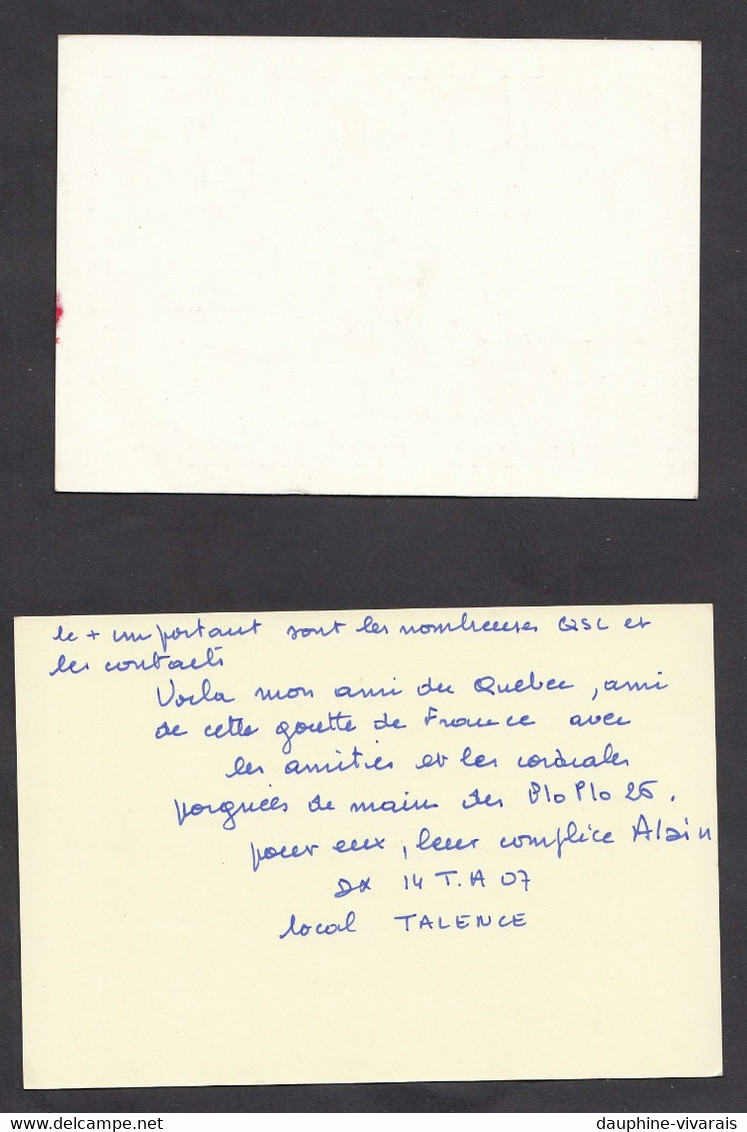 le + important sont les nombreuses QSL et
les contacts
Voila mon ami du Quebec, ami
de cette goutte de France avec
les amitiés et les cordiales
poignées de main des Plo Plo 26.
pour eux, leur complice Alain
14 T.A 07
local TALENCE
delcampe.net
dauphine-vivarais